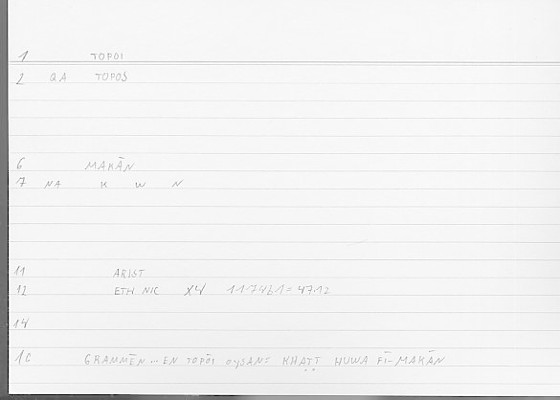 1 TOPOI
2 QA TOPOS
6 MAKĀN
7 NA K W N
11 ARIST
12 ETH NIC X4 1174b1=47.12
14
GRAMMĒN ... EN TOPŌS OYSANS KHAṬṬ HUWA FĪ-MAKĀN